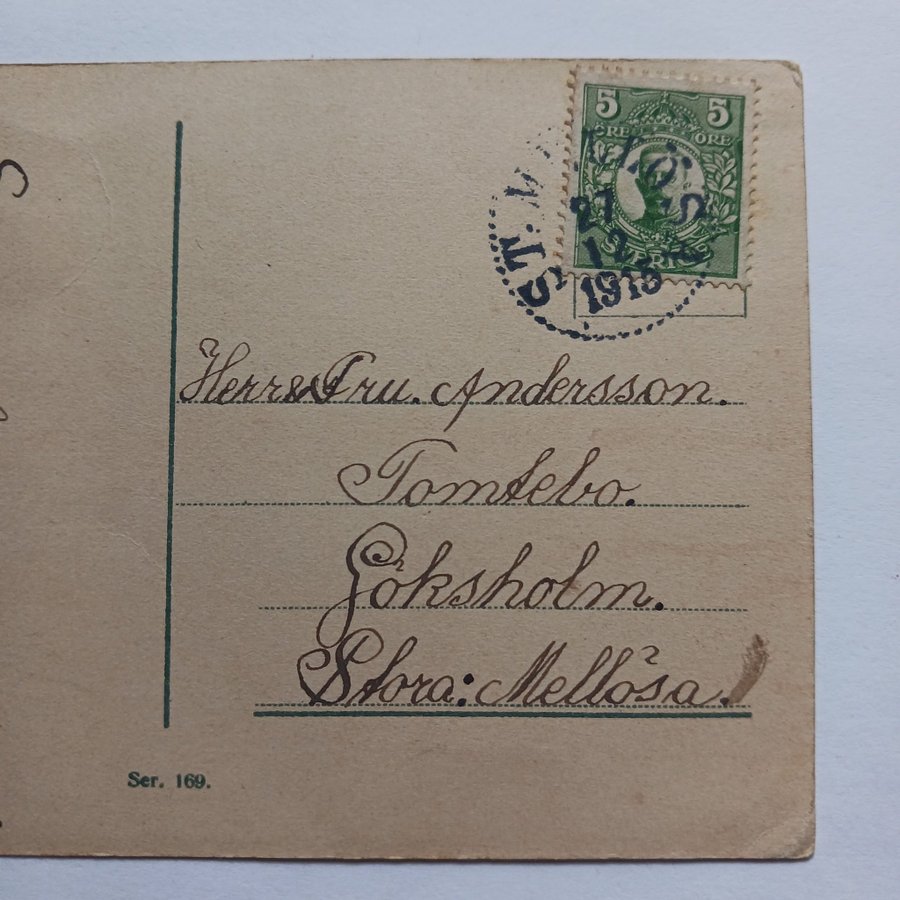 5 5
ÖRE ÖRE
SVERIGE
ST. MELLÖSA
27
12
1915
Herr & Fru. Andersson.
Tomtebo.
Göksholm.
Stora: Mellösa.
Ser. 169.